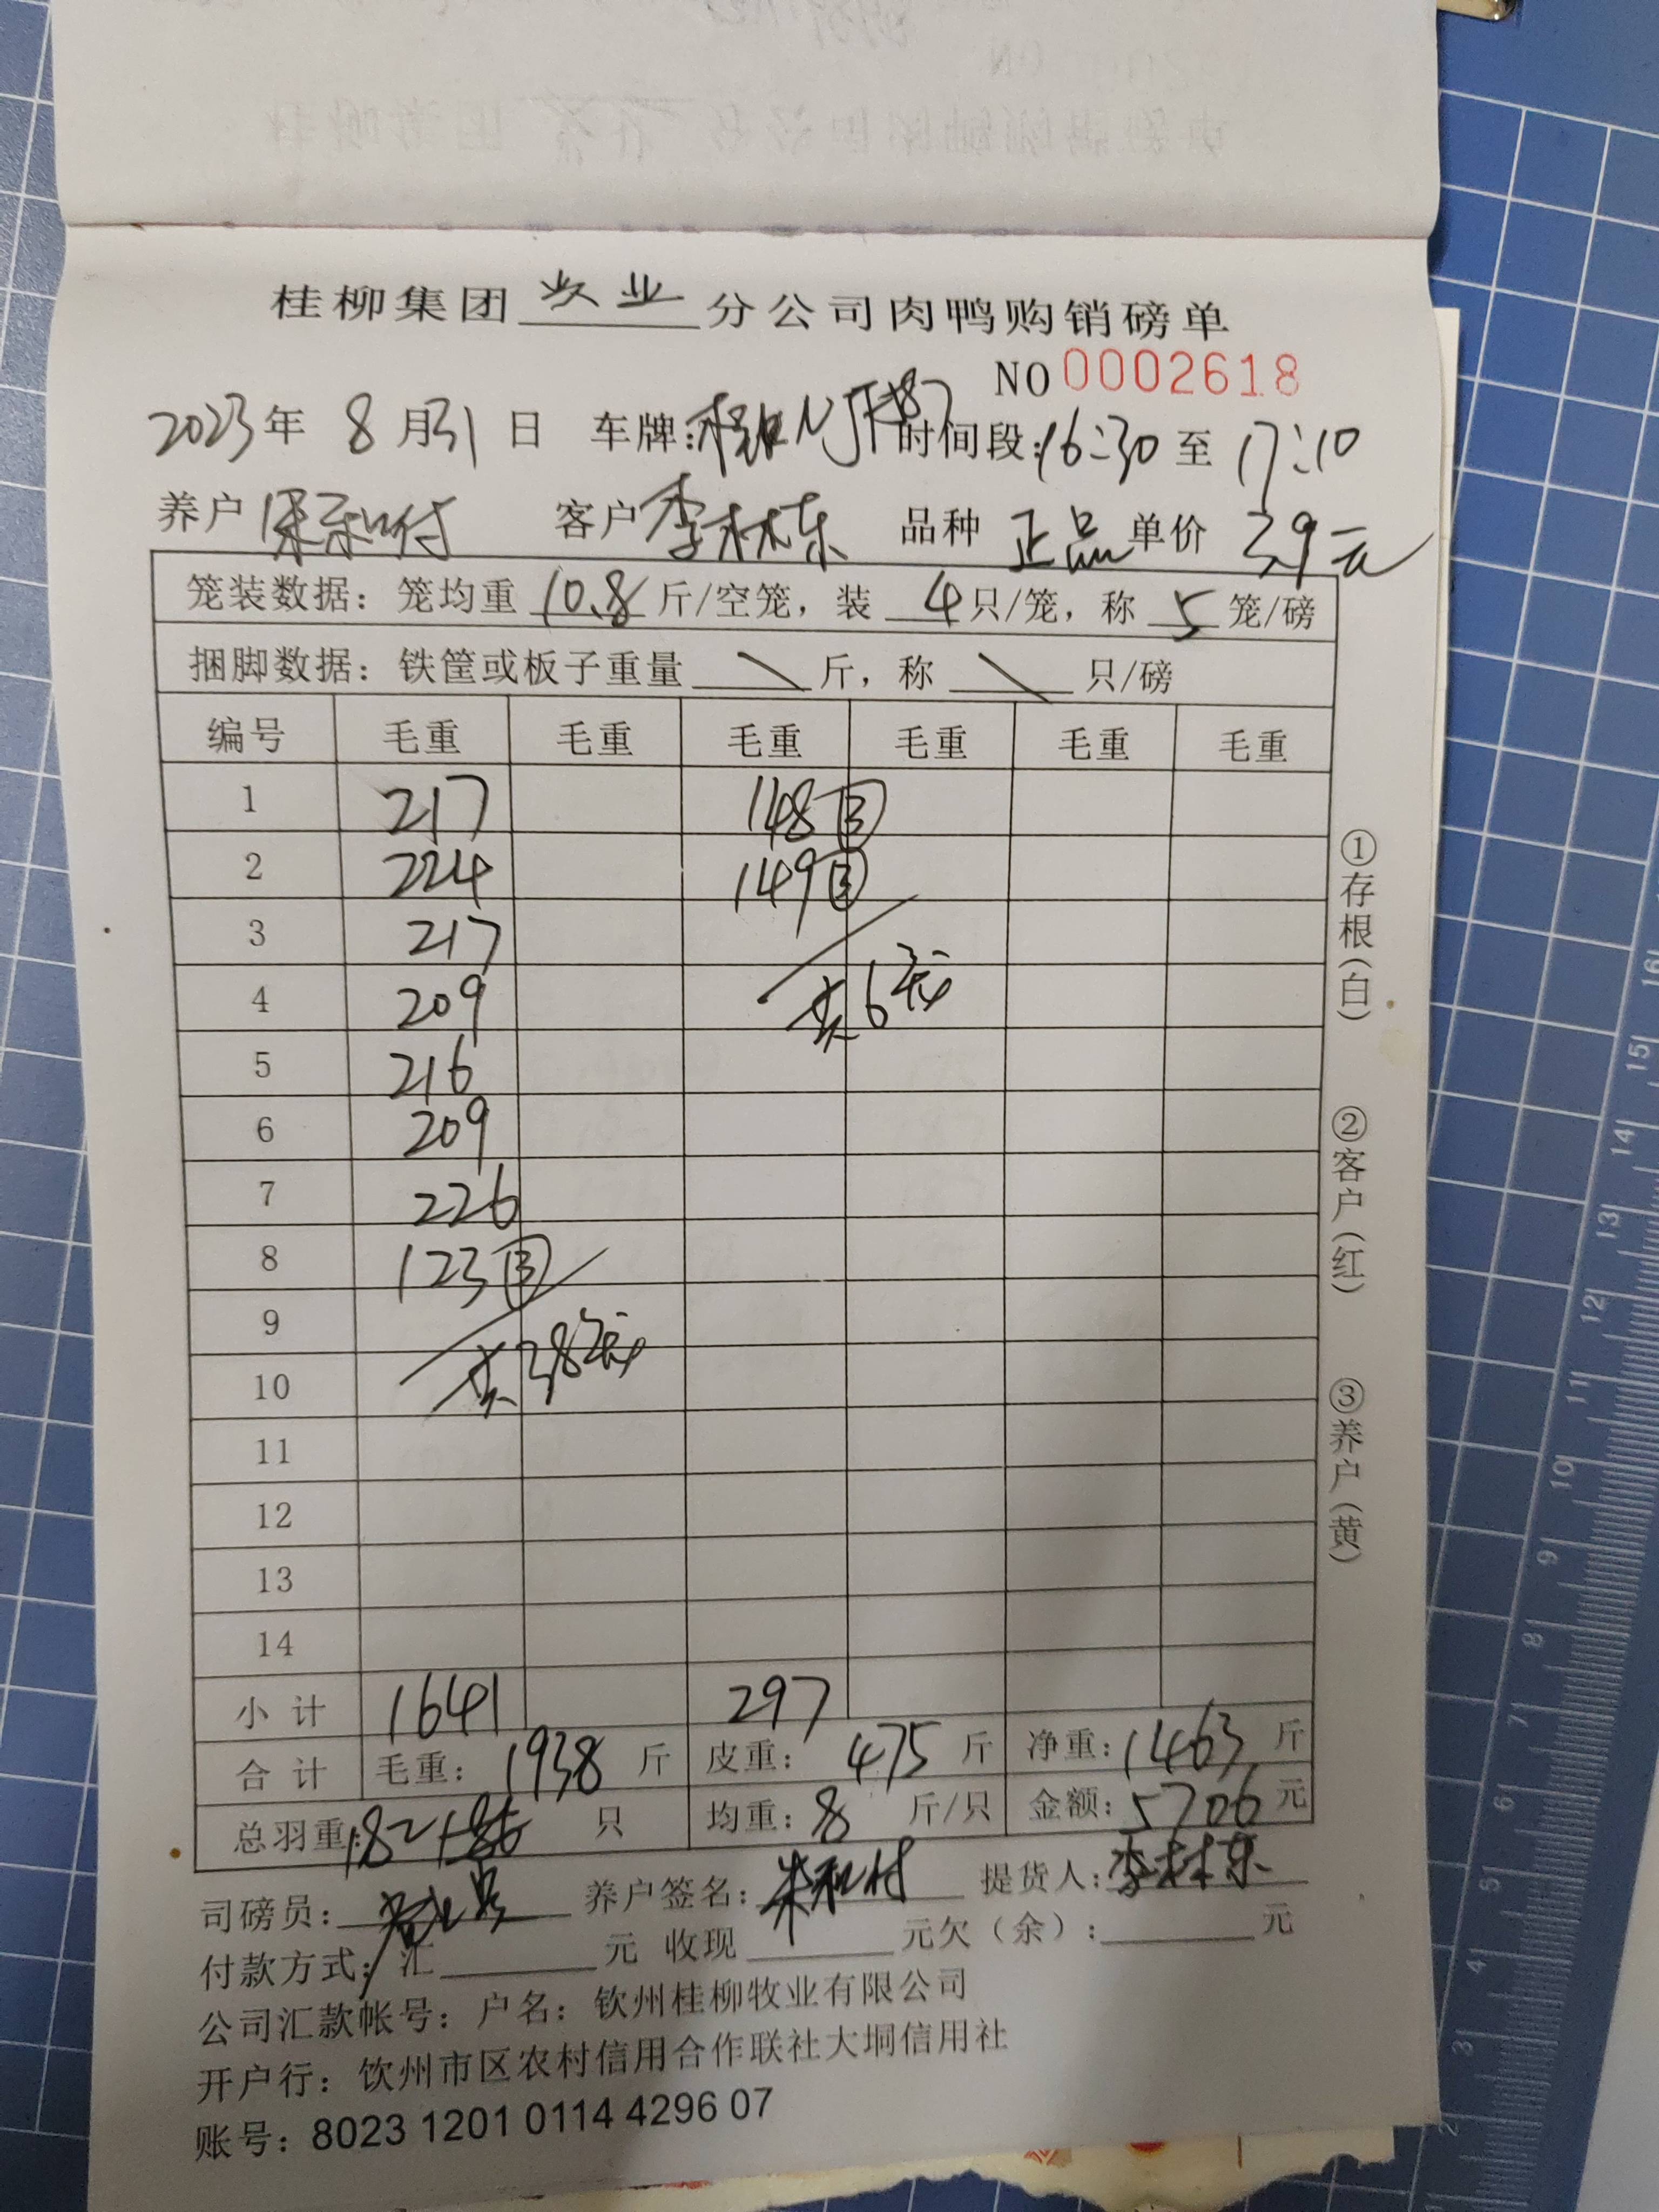 桂柳集团 牧业 分公司肉鸭购销磅单
NO 0002618
2023年 8月31日 车牌: 时间段:16:30 至 17:10
养户 客户 李林东 品种 正品 单价 3.9元
笼装数据: 笼均重 10.8 斤/空笼, 装 4只/笼, 称 5 笼/磅
捆脚数据: 铁筐或板子重量 \ 斤, 称 \ 只/磅
编号 毛重 毛重 毛重 毛重 毛重 毛重
1 217 148③
2 224 149③
3 217
4 209 共6笼
5 216
6 209
7 226
8 123③
9
10 共38笼
11
12
13
14
小计 1641 297
合计 毛重: 1938 斤 皮重: 475 斤 净重: 1463 斤
总羽重: 182 只 均重: 8 斤/只 金额: 5706 元
司磅员: 养户签名: 提货人: 李林东
付款方式: 汇 元 收现 元欠(余): 元
公司汇款帐号: 户名: 钦州桂柳牧业有限公司
开户行: 钦州市区农村信用合作联社大垌信用社
账号: 8023 1201 0114 4296 07
①存根(白)
②客户(红)
③养户(黄)
16
15
14
13
12
11
10
9
8
7
6
5
4
3
2